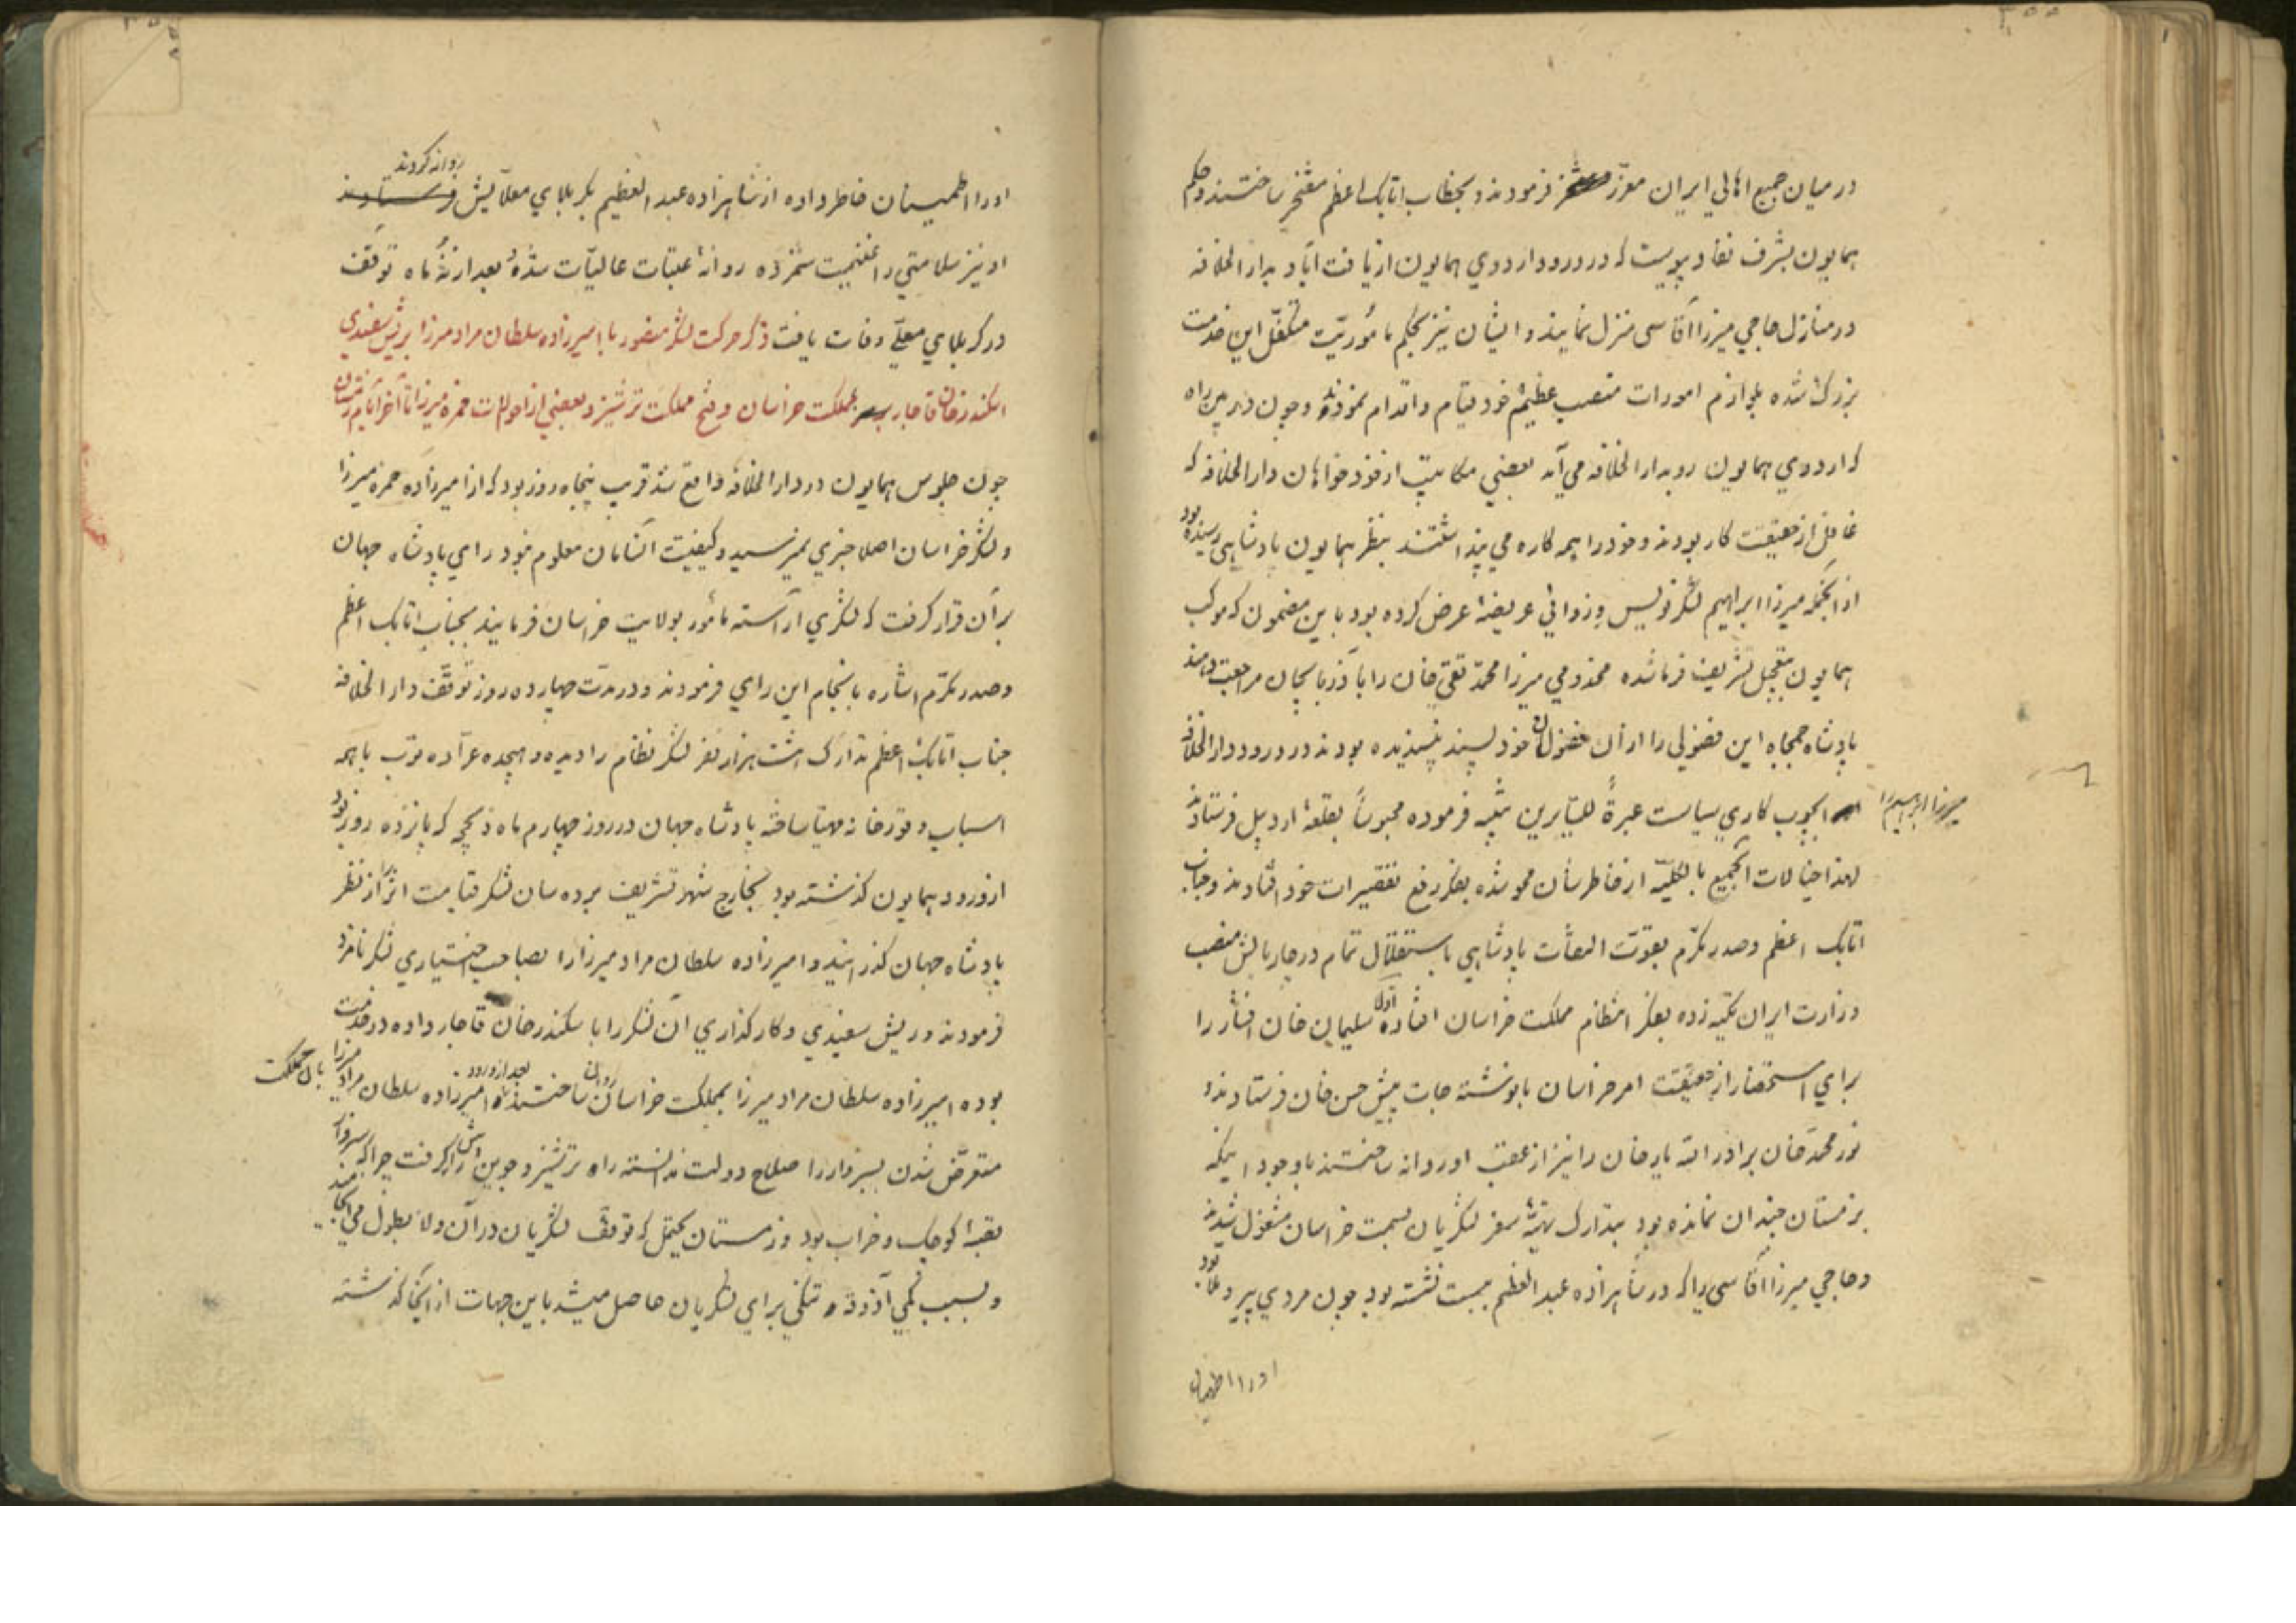 در میان جمیع اهالی ایران معزز فرمودند و بخطاب اتابک اعظم مفتخر ساختند و حکم
همایون بشرف نفاد پیوست که در ورود اردوی همایون از یافت آباد بدار الخلافه
در منازل حاجی میرزا آقاسی منزل نمایند و ایشان نیز بحکم مأموریّت متکفّل این خدمت
بزرگ شده بلوازم امورات منصب عظیم خود قیام و اقدام نمودند و چون در بین راه
که اردوی همایون رو بدار الخلافه می آمد بعضی مکاتیب از خودخواهان دار الخلافه که
غافل از حقیقت کار بودند و خود را همه کاره می پنداشتند بنظر همایون پادشاهی رسیده بود
از آنجمله میرزا ابراهیم لشکرنویس عریضهٔ عرض کرده بود باین مضمون که موکب
همایون بتعجیل تشریف فرما شده مخدومی میرزا محمّد تقی خان را بآذربایجان مراجعت دهند
پادشاه جمجاه این فضولی را از آن فضولان خودپسند نپسندیده بودند در ورود دار الخلافه
میرزا ابراهیم را بچوب کاری سیاست عبرةً للسّایرین تنبیه فرموده محبوساً بقلعهٔ اردبیل فرستادند
لهذا خیالات آنجمیع بالکلیّه از خاطرشان محو شده بفکر رفع تقصیرات خود افتادند و جناب
اتابک اعظم و صدر مکرّم بقوّت التفات پادشاهی باستقلال تمام در چاربالش منصب
وزارت ایران تکیه زده بفکر انتظام مملکت خراسان افتاده اوّلا سلیمان خان افشار را
برای استحضار از حقیقت امر خراسان با نوشته جات پیش حسن خان فرستادند و
نور محمّد خان برادر الله یار خان را نیز از عقب او روانه ساختند باوجود اینکه
بزمستان چندان نمانده بود بتدارک تهیّهٔ سفر لشکریان بسمت خراسان مشغول شدند
و حاجی میرزا آقاسی را که در شاهزاده عبد العظیم ببست نشسته بود چون مردی پیر و بود
او را اطمینان
او را اطمینان خاطر داده از شاهزاده عبد العظیم بکربلای معلّایش روانه کردند
او نیز سلامتی را غنیمت شمرده روانهٔ عتبات عالیات شده بعد از نه ماه توقف
در کربلای معلّی وفات یافت ذکر حرکت لشکر منصور با امیرزاده سلطان مراد میرزا بریش سفیدی
اسکندر خان قاجار بمملکت خراسان و فتح مملکت ترشیز و بعضی از احوالات حمزه میرزا تا آخر ایام زمستان
چون جلوس همایون در دار الخلافه واقع شد قریب پنجاه روز بود که از امیرزاده حمزه میرزا
و لشکر خراسان اصلا خبری نمیرسید و کیفیّت آنسامان معلوم نبود رای پادشاه جهان
بر آن قرار گرفت که لشکری آراسته مأمور بولایت خراسان فرمایند بجناب اتابک اعظم
و صدر مکرّم اشاره بانجام این رای فرمودند و در مدّت چهارده روز توقّف دار الخلافه
جناب اتابک اعظم تدارک هشت هزار نفر لشکر نظام را دیده و هیجده عرّاده توپ با همه
اسباب و قورخانه مهیّا ساخته پادشاه جهان در روز چهارم ماه ذیحجّه که پانزده روز بود
از ورود همایون گذشته بود بخارج شهر تشریف برده سان لشکر قیامت اثر را از نظر
پادشاه جهان گذرانیدند و امیرزاده سلطان مراد میرزا را بصاحب اختیاری لشکر نامزد
فرمودند و ریش سفیدی و کارگذاری آن لشکر را با سکندر خان قاجار داده در خدمت
بوده امیرزاده سلطان مراد میرزا بمملکت خراسان روان ساختند بعد از ورود امیرزاده سلطان مراد میرزا بآن مملکت
متعرّض شدن بسبزوار را صلاح دولت ندانسته راه ترشیز و جوین را گرفت چرا که سبزوار
قصبهٔ کوچک و خراب بود و زمستان یحتمل که توقف لشکریان در آن ولا بطول می انجامید
و بسبب کمی آذوقه تنگی برای لشکریان حاصل میشد باین جهات از آنجا گذشته